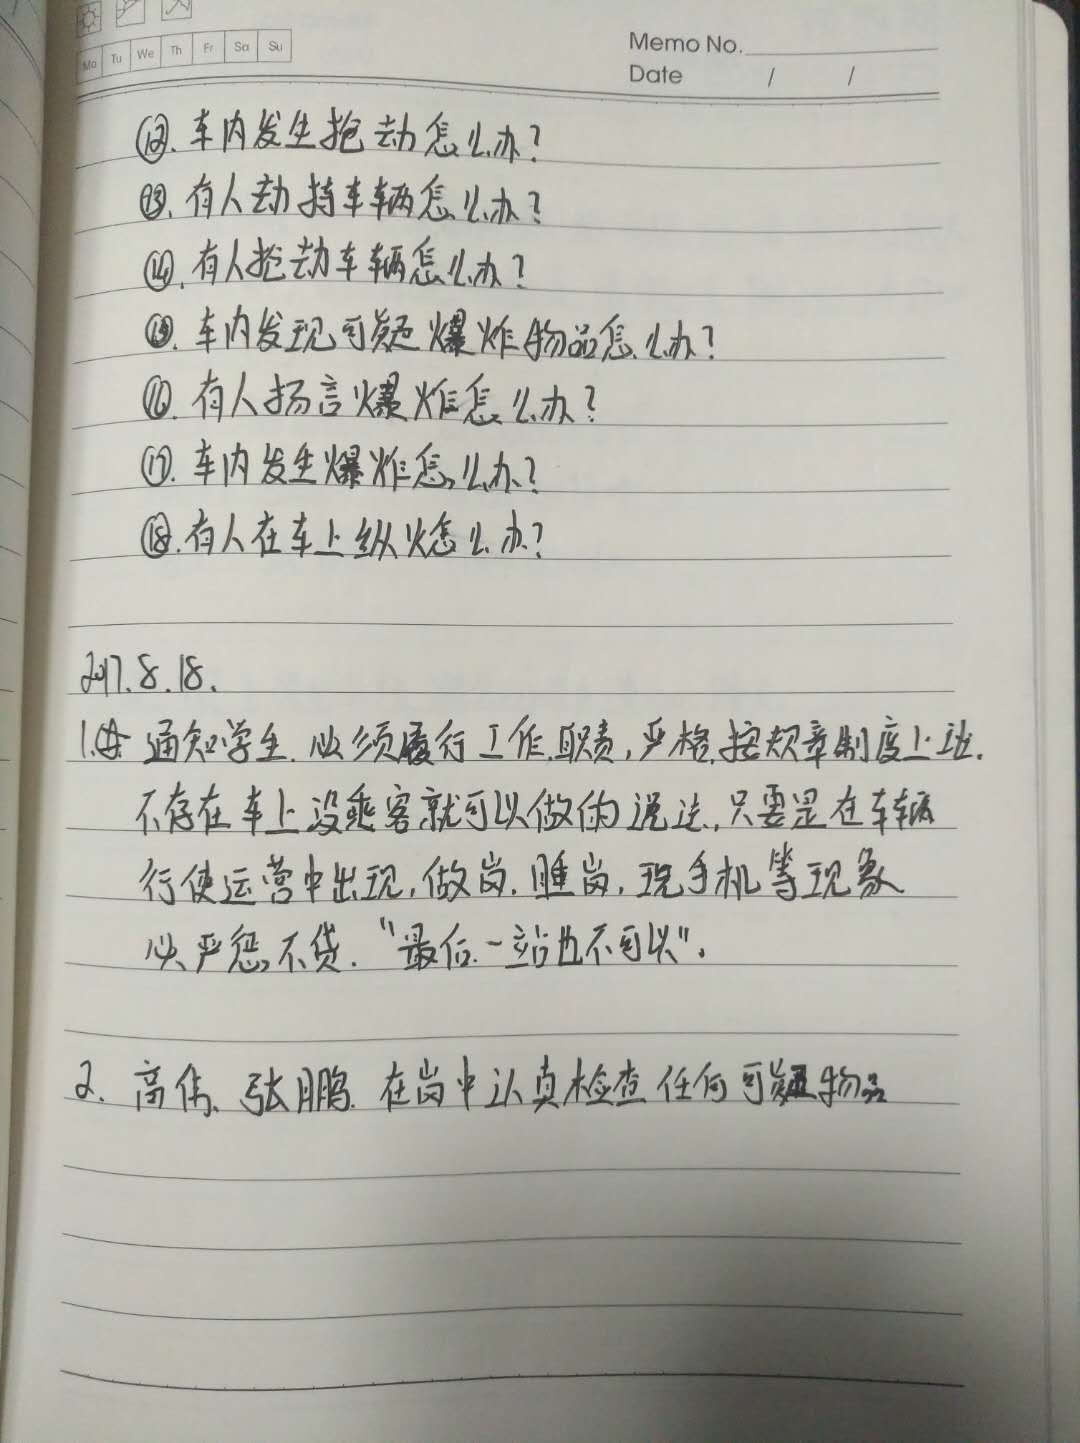 Mo Tu We Th Fr Sa Su
Memo No.
Date / /
⑫.车内发生抢劫怎么办?
⑬.有人劫持车辆怎么办?
⑭.有人抢劫车辆怎么办?
⑮.车内发现可疑爆炸物品怎么办?
⑯.有人扬言爆炸怎么办?
⑰.车内发生爆炸怎么办?
⑱.有人在车上纵火怎么办?
2017.8.18.
1. 通知学生.必须履行工作职责,严格按规章制度上班.
不存在车上没乘客就可以做的说法,只要是在车辆
行使运营中出现,做岗.睡岗,玩手机等现象
必严惩不贷."最后一站也不可以".
2.高伟、张鹏.在岗中认真检查任何可疑物品